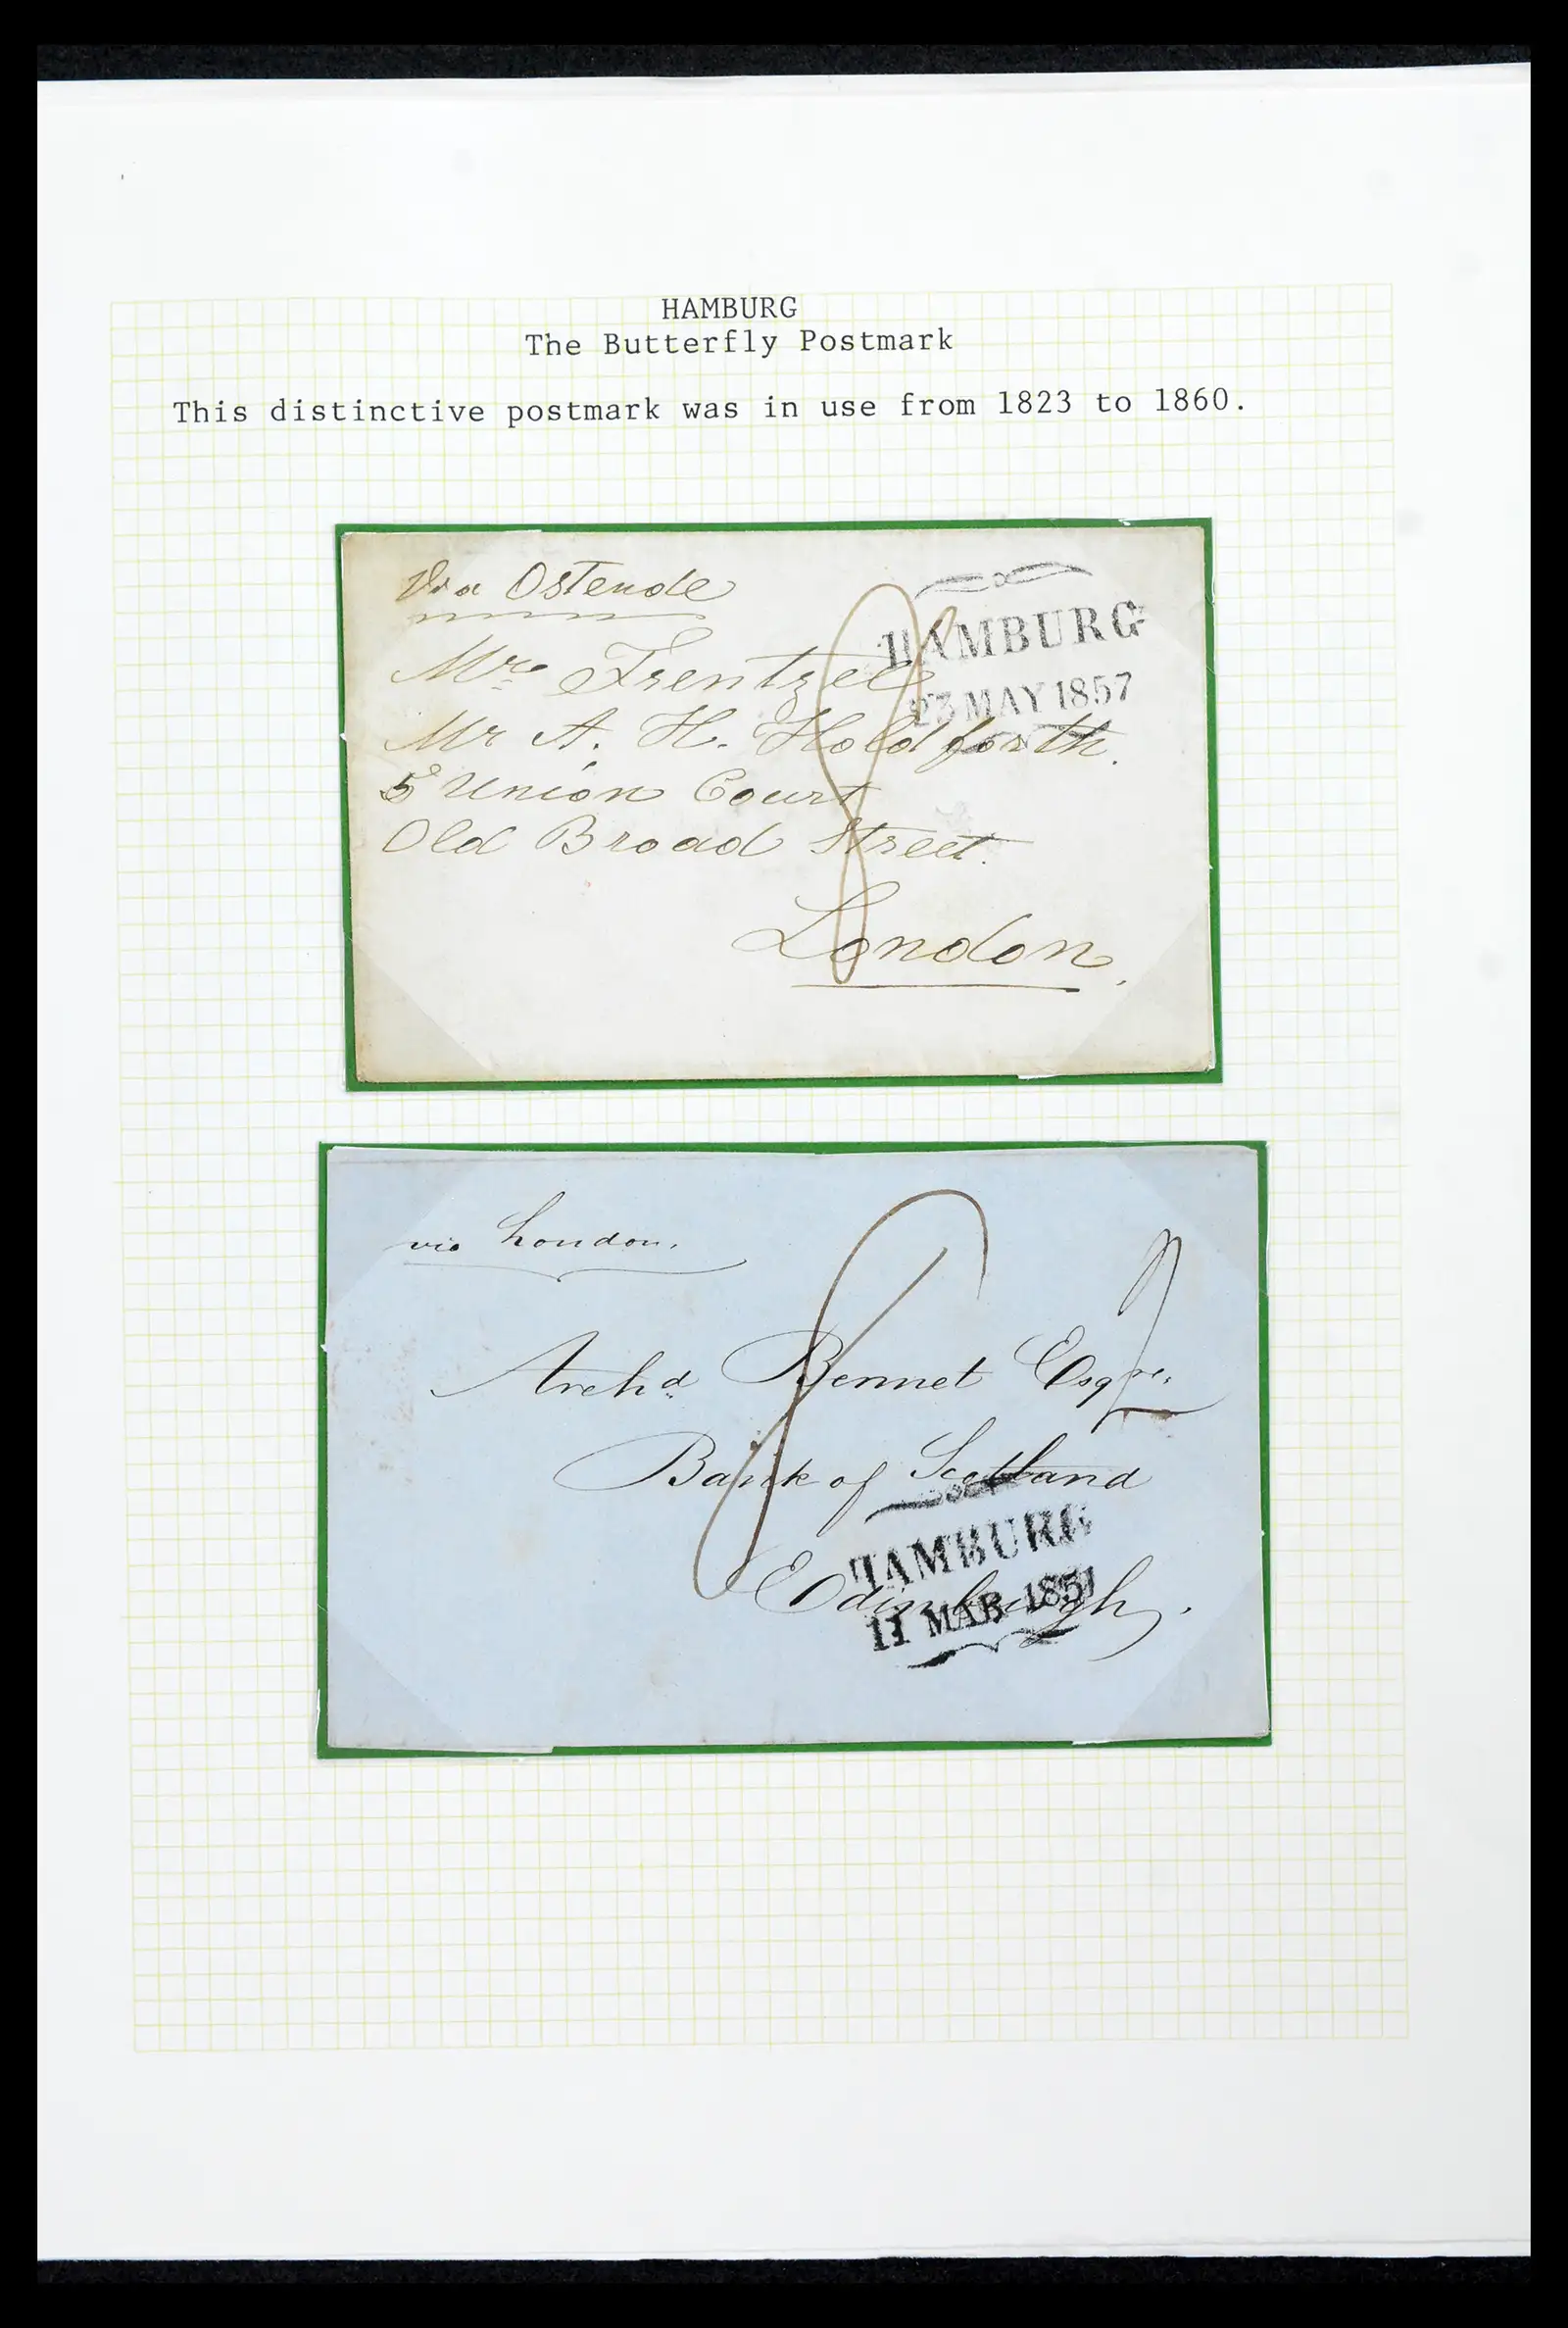 HAMBURG
The Butterfly Postmark
This distinctive postmark was in use from 1823 to 1860.
Via Ostende
HAMBURG
23 MAY 1857
Mrs Frentzel
Mr A. H. Holdforth.
5 Union Court
Old Broad Street.
London.
via London.
Archd Bennet Esqre,
Bank of Scotland
HAMBURG
Edinburgh,
11 MAR 1851